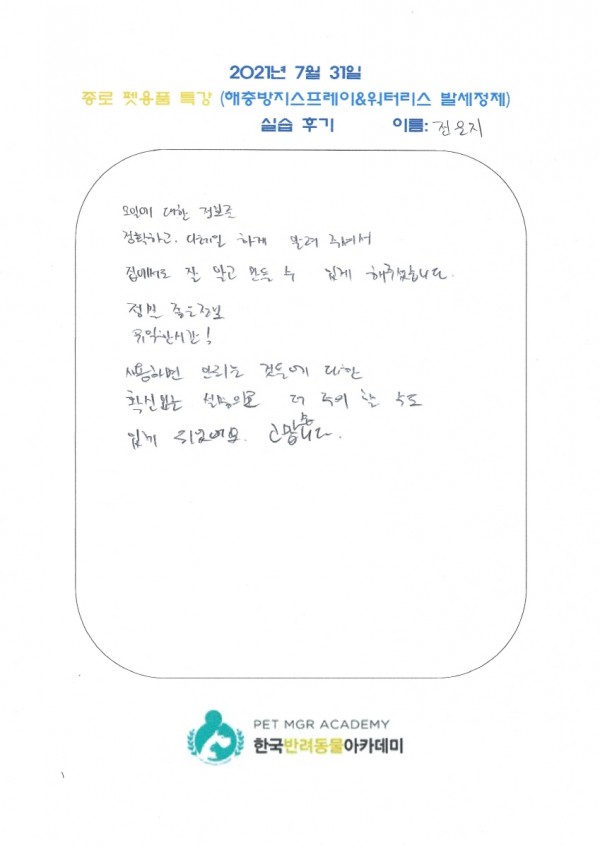 2021년 7월 31일
종로 펫용품 특강 (해충방지스프레이&워터리스 발세정제)
실습 후기 이름: 전은지
오일에 대한 정보를
정확하고. 디테일 하게 알려 주셔서
집에서도 잘 알고 만들 수 있게 해주셨습니다.
정말 좋은정보
유익한시간!
사용하면 안되는 것들에 대한
확실한 설명으로 더 주의 할 수도
있게 되었어요. 고맙습니다.
PET MGR ACADEMY
한국반려동물아카데미